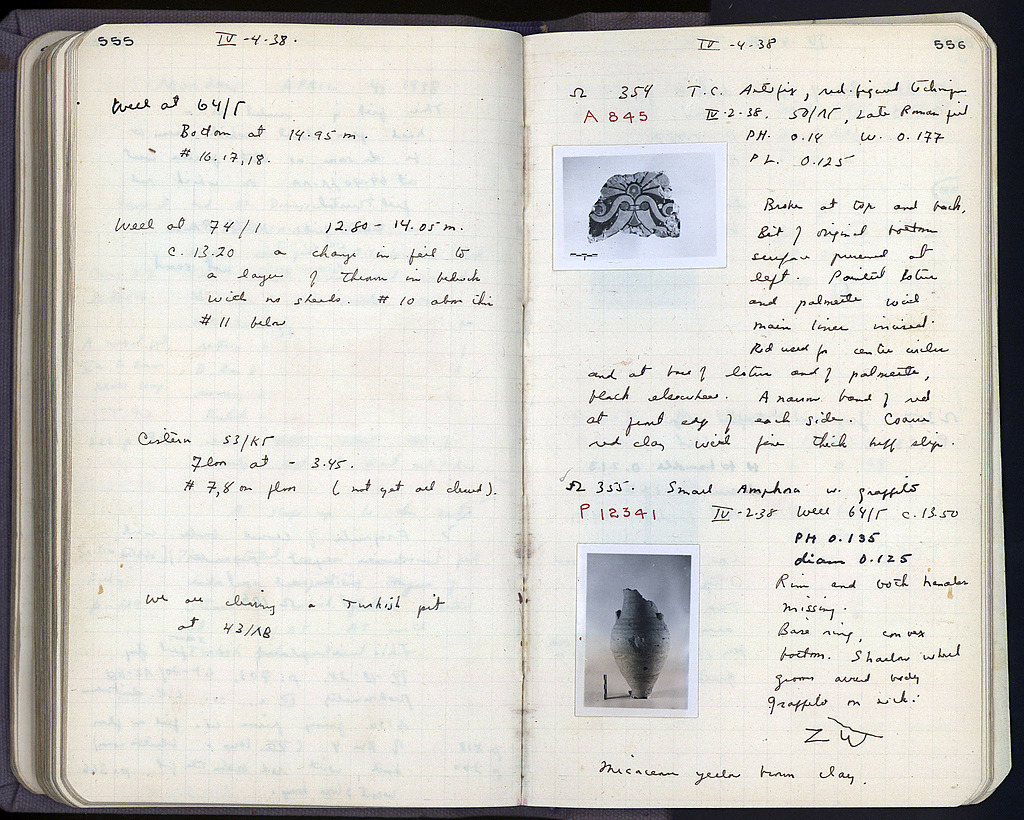 555
IV -4-38.
Well at 64/Γ
Bottom at 14.95 m.
# 16.17,18.
Well at 74/1 12.80 - 14.05 m.
c. 13.20 a change in fill to
a layer of in bedrock
with no sherds. # 10 above this
# 11 below
Cistern 53/ΚΓ
Floor at - 3.45.
# 7,8 on floor (not yet all cleared).
We are clearing a Turkish pit
at 43/ΛΒ
IV -4-38
556
Ω 354 T.C. Antefix, red-figured technique
A 845
IV-2-38. 50/ΛΓ, Late Roman fill
PH. 0.14 W. 0.177
PL. 0.125
Broken at top and back.
Bit of original bottom
surface preserved at
left. Painted lotus
and palmette with
main lines incised.
Red used for centre circles
and at base of lotus and of palmette,
black elsewhere. A narrow band of red
at front edge of each side. Coarse
red clay with fine thick buff slip.
Ω 355. Small Amphora w. graffito
P 12341
IV-2-38 Well 64/Γ c. 13.50
PH 0.135
diam 0.125
Rim and both handles
missing.
Base ring, convex
bottom. Shallow wheel
grooves around body
Graffito on neck:
Micaceous yellow brown clay.